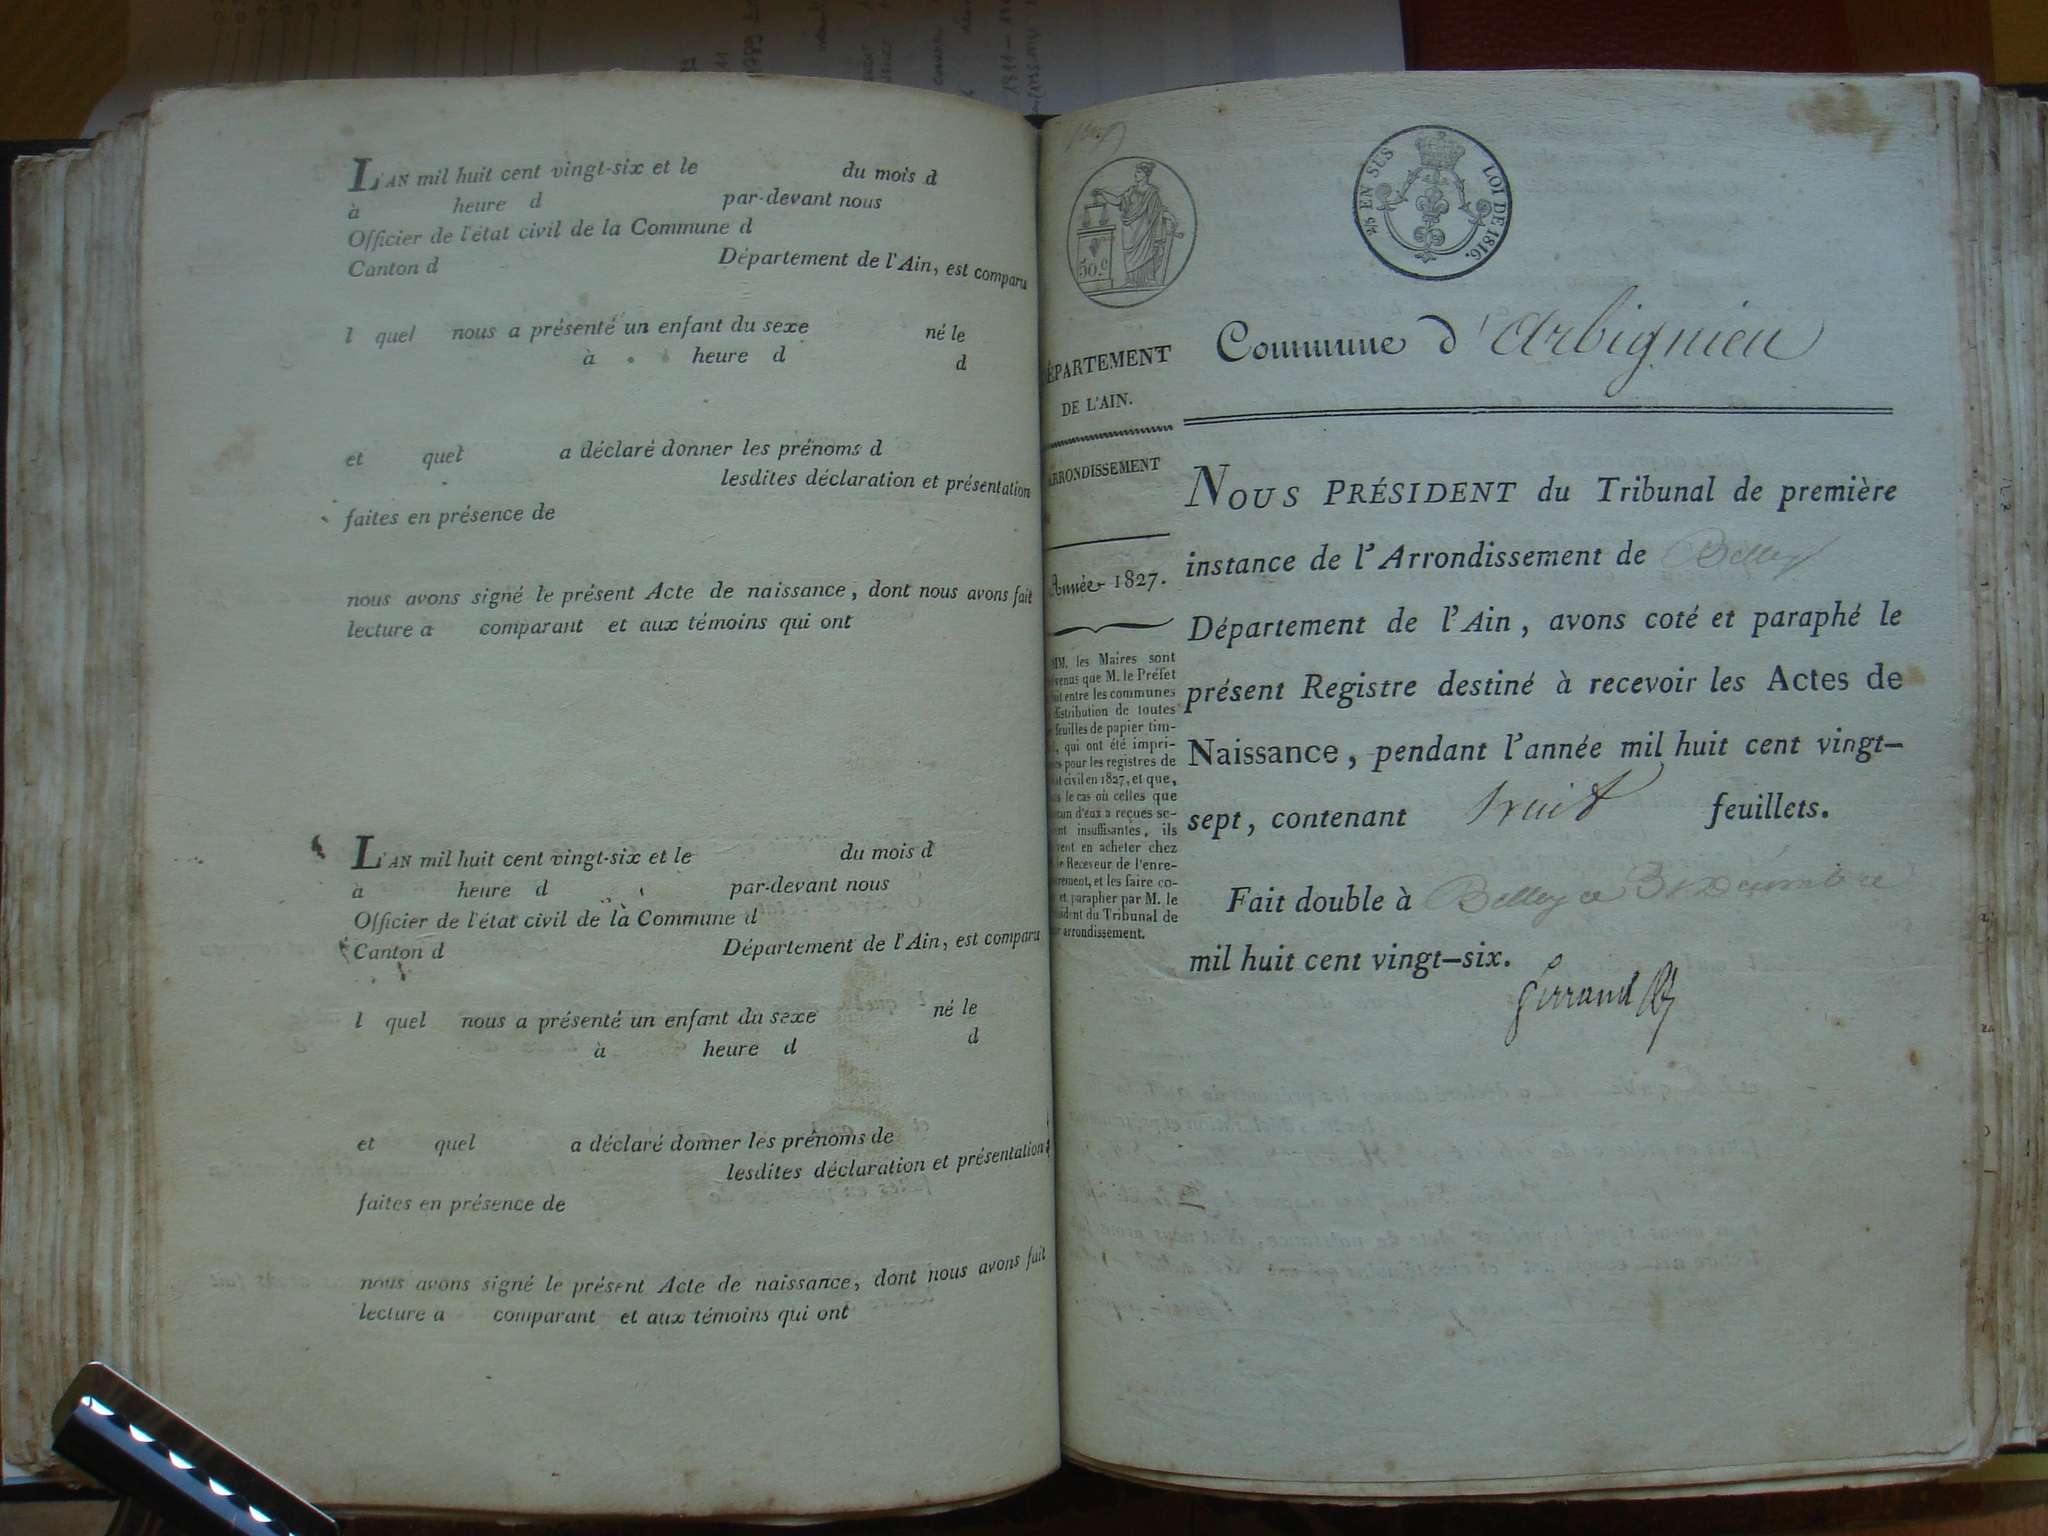 L'AN mil huit cent vingt-six et le du mois d
à heure d par-devant nous
Officier de l'état civil de la Commune d
Canton d Département de l'Ain, est comparu
l quel nous a présenté un enfant du sexe né le
à heure d d
et quel a déclaré donner les prénoms d
lesdites déclaration et présentation
faites en présence de
nous avons signé le présent Acte de naissance, dont nous avons fait
lecture a comparant et aux témoins qui ont
L'AN mil huit cent vingt-six et le du mois d
à heure d par-devant nous
Officier de l'état civil de la Commune d
Canton d Département de l'Ain, est comparu
l quel nous a présenté un enfant du sexe né le
à heure d d
et quel a déclaré donner les prénoms de
lesdites déclaration et présentation
faites en présence de
nous avons signé le présent Acte de naissance, dont nous avons fait
lecture a comparant et aux témoins qui ont
50.c
EN SUS LOI DE 1816.
DÉPARTEMENT
DE L'AIN.
ARRONDISSEMENT
Année 1827.
MM. les Maires sont
venus que M. le Préfet
fait entre les communes
distribution de toutes
feuilles de papier tim-
, qui ont été impri-
pour les registres de
civil en 1827, et que,
le cas où celles que
d'eux a reçues se-
insuffisantes, ils
en acheter chez
le Receveur de l'enre-
et les faire co-
et parapher par M. le
du Tribunal de
arrondissement.
Commune d'Arbignieu
NOUS PRÉSIDENT du Tribunal de première
instance de l'Arrondissement de Belley
Département de l'Ain, avons coté et paraphé le
présent Registre destiné à recevoir les Actes de
Naissance, pendant l'année mil huit cent vingt-
sept, contenant huit feuillets.
Fait double à Belley ce 31 Décembre
mil huit cent vingt-six.